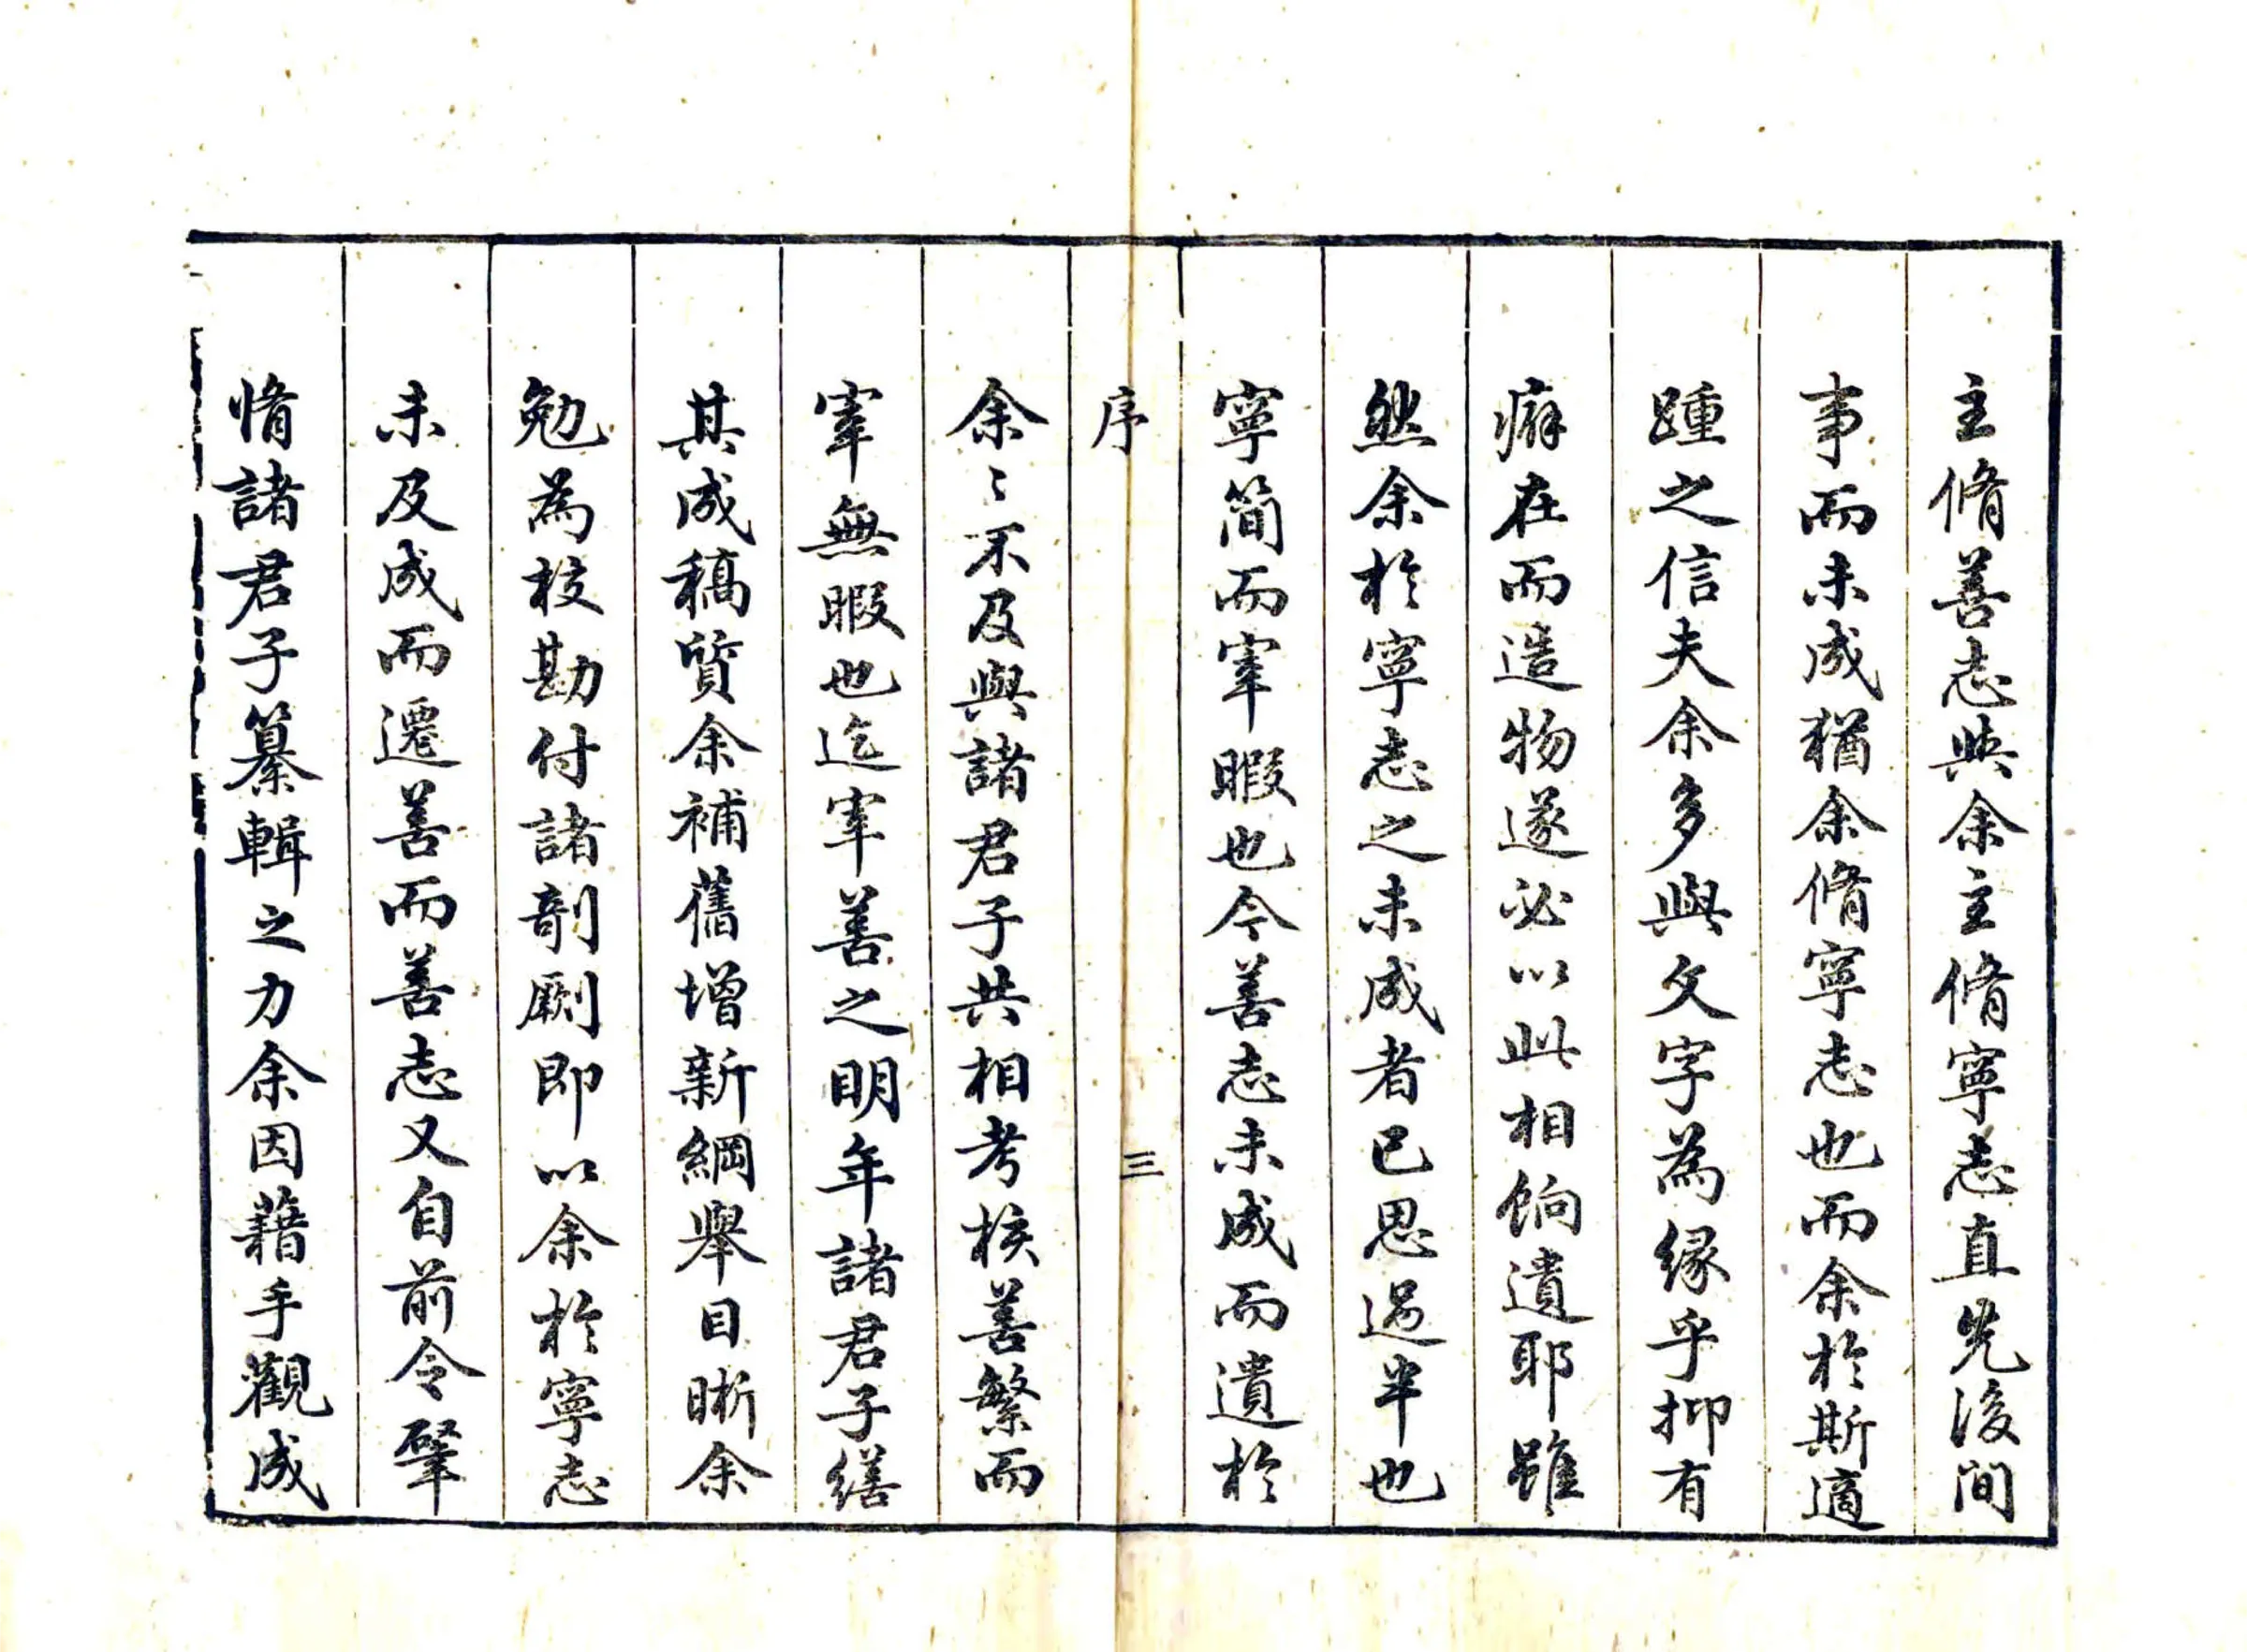 主脩善志與余主脩寧志直先後間
事而未成猶余脩寧志也而余於斯適
踵之信夫余多與文字為緣乎抑有
癖在而造物遂必以此相餉遺耶雖
然余於寧志之未成者已思過半也
寧簡而宰暇也今善志未成而遺於
序 三
余〻不及與諸君子共相考核善繁而
宰無暇也迄宰善之明年諸君子繕
其成稿質余補舊增新綱舉目晰余
勉為校勘付諸剞劂即以余於寧志
未及成而遷善而善志又自前令肇
脩諸君子纂輯之力余因藉手觀成